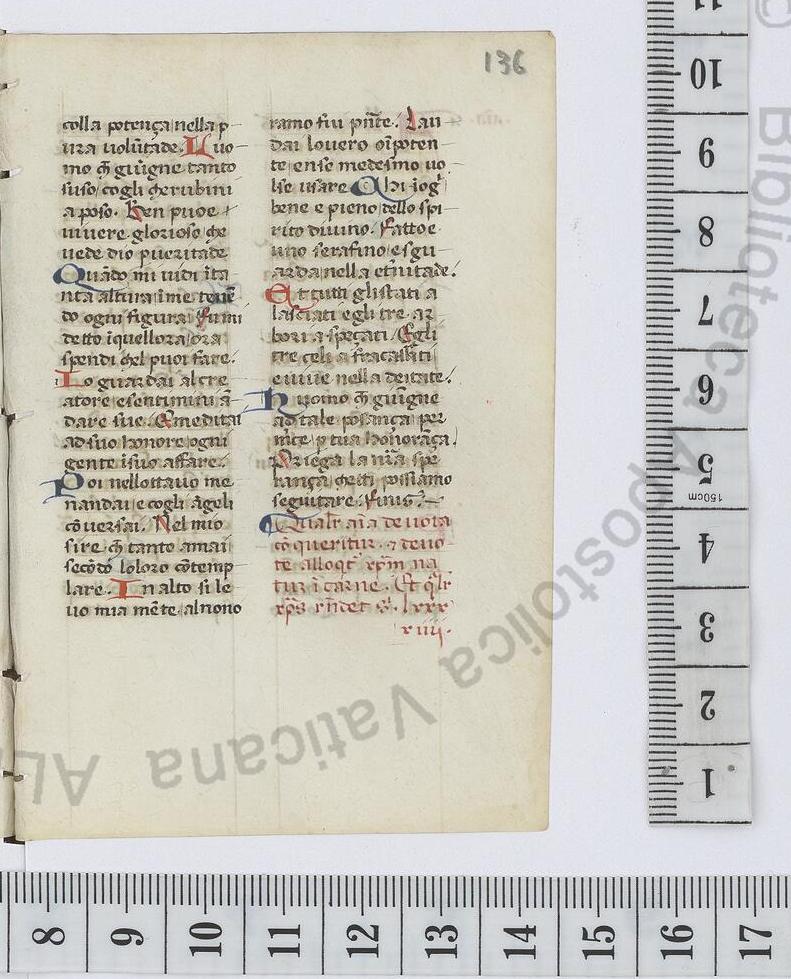 136
colla potença nella p
ura uolũtade. L uo
mo cħ giũgne tanto
suso cogli cherubini
a poso. Ben puo e
uiuere glorioso che
uede dio p ueritade
Quãdo mi uidi ĩ ta
nta altura ĩ me tenẽ
do ogni figura. Fu mi
detto ĩ quellora ora
spendi chel puoi fare.
Lo guardai al cre
atore e sentimini ã
dare sue. E meditai
ad suo honore ogni
gente ĩ suo affare.
Poi nellottauo me
nandai e cogli ãgeli
cõuersai. Nel mio
sire cħ tanto amai
secõdo loloro cõtemp
lare. In alto si le
uo mia mẽte al nono
ramo fui pñte. Lau
dai lo uero oĩpoten
te en se medesmo uo
lse usare. Chi iog
bene e pieno dello spi
rito diuino. Fatto e
uno serafino e sgu
arda nella etñitade.
Et tutti gli stati a
lasciati e gli tre ar
bori a speçati. E gli
tre celi a fracassati
e uiue nella deitate.
Huomo cħ giũgne
ad tale posança per
mite p tua honorãça.
Priega la nr̃a spe
rança chetti possiamo
seguitare. Finis.
Qualr aĩa deuota
cõqueritur. ⁊ deuo
te alloqt᷑ xp̃m na
tur ĩ carne. Et qlr
xp̃s rñdet S. lxxx
x iiij.
1
2
3
4
5
150cm
6
7
8
9
10
11
8
9
10
11
12
13
14
15
16
17
© Biblioteca Apostolica Vaticana